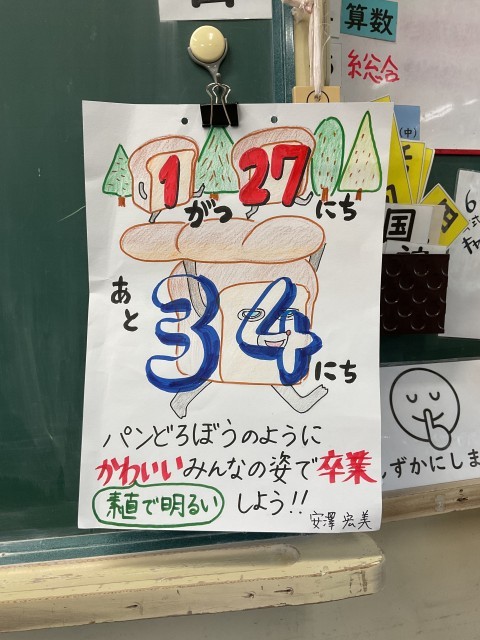 算数
総合
(中)
国
6
1がつ27にち
あと34にち
パンどろぼうのように
かわいいみんなの姿で卒業
素直で明るい しよう!!
安澤 宏美
しずかにしま